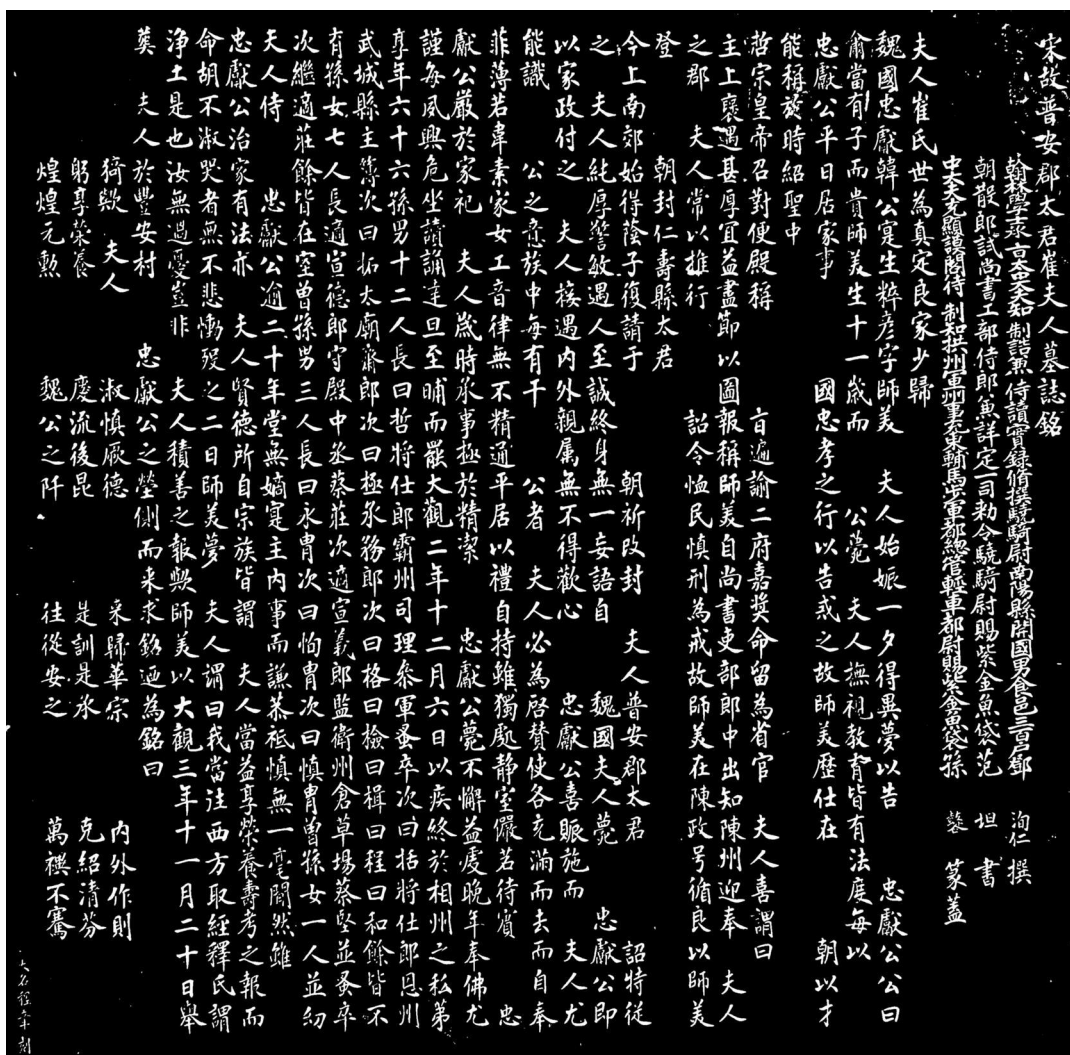 宋故普安郡太君崔夫人墓誌銘
翰林學士承旨太中大夫知 制誥兼侍讀實錄脩撰驍騎尉南陽縣開國男食邑三百户鄧 洵仁 撰
朝散郎試尚書工部侍郎兼詳定一司勑令驍騎尉賜紫金魚袋范 坦 書
中大夫充顯謨閣待 制知拱州軍州事充東輔馬步軍都總管輕車都尉賜紫金魚袋孫 篆蓋
夫人崔氏世為真定良家少歸
魏國忠獻韓公寔生粹彦字師美 夫人始娠一夕得異夢以告 忠獻公公曰
爾當有子而貴師美生十一歲而 公薨 夫人撫視教育皆有法度每以
忠獻公平日居家事 國忠孝之行以告戒之故師美歷仕在 朝以才
能稱於時紹聖中
哲宗皇帝召對便殿稱 旨遍諭二府嘉奬命留為省官 夫人喜謂曰
主上襃遇甚厚宜益盡節以圖報稱師美自尚書吏部郎中出知陳州迎奉 夫人
之郡 夫人常以推行 詔令恤民慎刑為戒故師美在陳政号循良以師美
登 朝封仁壽縣太君
今上南郊始得蔭子復請于 朝祈改封 夫人普安郡太君 詔特從
之 夫人純厚警敏遇人至誠終身無一妄語自 魏國夫人薨 忠獻公即
以家政付之 夫人接遇内外親属無不得歡心 忠獻公喜賑施而 夫人尤
能識 公之意族中每有干 公者 夫人必為啓賛使各充滿而去而自奉
菲薄若韋素家女工音律無不精通平居以禮自持雖獨處静室儼若待賔 忠
獻公嚴於家祀 夫人歲時承事極於精潔 忠獻公薨不懈益虔晚年奉佛尤
謹每夙興危坐讀誦達旦至晡而罷大觀二年十二月六日以疾終於相州之私第
享年六十六孫男十二人長曰哲將仕郎霸州司理叅軍蚤卒次曰括將仕郎恩州
武城縣主簿次曰拓太廟齋郎次曰極承務郎次曰格曰檢曰楫曰程曰和餘皆不
有孫女七人長適宣德郎守殿中丞蔡莊次適宣義郎監衛州倉草場蔡堅並蚤卒
次繼適莊餘皆在室曾孫男三人長曰永胄次曰怐胄次曰慎胄曾孫女一人並幼
夫人侍 忠獻公逾二十年堂無嫡寔主内事而謙恭祗慎無一毫間然雖
忠獻公治家有法亦 夫人賢德所自宗族皆謂 夫人當益享榮養壽考之報而
命胡不淑哭者無不悲慟歿之二日師美夢 夫人謂曰我當往西方取經釋氏謂
浄土是也汝無過憂豈非 夫人積善之報歟師美以大觀三年十一月二十日舉
葬 夫人於豐安村 忠獻公之塋側而来求銘迺為銘曰
猗歟 夫人 淑慎厥德 来歸華宗 内外作則
躬享榮養 慶流後昆 是訓是承 克紹清芬
煌煌元勲 魏公之阡 往從安之 萬禩不騫